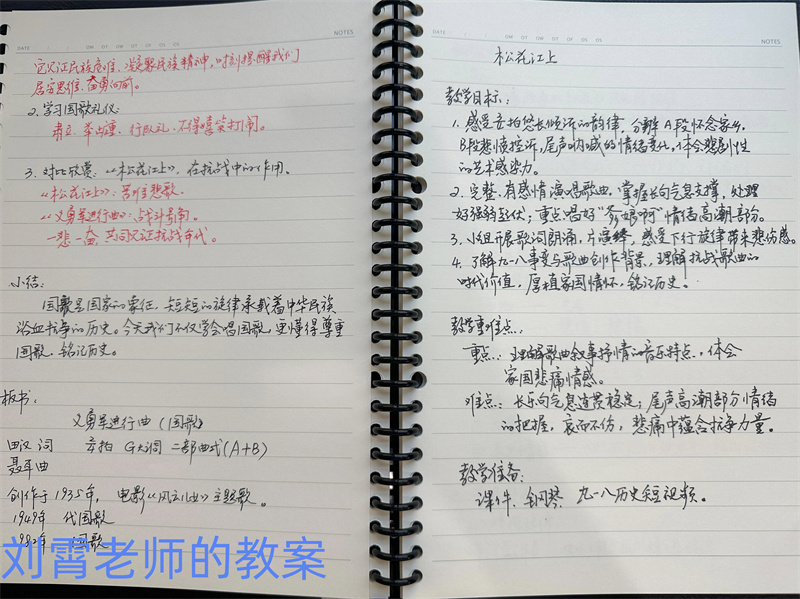 DATE
NOTES
它见证民族危难、凝聚民族精神,时刻提醒我们
居安思危、奋勇向前。
2. 学习国歌礼仪:
肃立、行队礼、不得嘻笑打闹。
3. 对比欣赏:《松花江上》,在抗战中的作用。
《松花江上》:苦难悲歌。
《义勇军进行曲》:战斗号角。
一悲一奋,共同见证抗战年代。
小结:
国歌是国家的象征,短短的旋律承载着中华民族
浴血抗争的历史。今天我们不仅学会唱国歌,更懂得尊重
国歌、铭记历史。
板书:
义勇军进行曲(国歌)
田汉 词 G大调 二部曲式(A+B)
聂耳 曲
创作于1935年, 电影《风云儿女》主题歌。
1949年 代国歌
1982年 国歌
刘霄老师的教案
DATE
NOTES
松花江上
教学目标:
1. 感受悠长倾诉的韵律,分辨A段怀念家乡,
B段悲愤控诉,尾声呐喊的情绪变化,体会悲剧性
的艺术感染力。
2. 完整、有感情演唱歌曲。掌握长句气息支撑,处理
好强弱起伏;重点唱好"爹娘啊"情绪高潮部份。
3. 小组开展歌词朗诵,感受下行旋律带来悲伤感。
4. 了解九一八事变与歌曲创作背景,理解抗战歌曲的
时代价值,厚植家国情怀、铭记历史。
教学重难点:
重点:理解歌曲叙事抒情的音乐特点,体会
家国悲痛情感。
难点:长乐句气息连贯稳定;尾声高潮部分情绪
的把握,哀而不伤,悲痛中蕴含抗争力量。
教学准备:
课件、钢琴、九一八历史短视频。